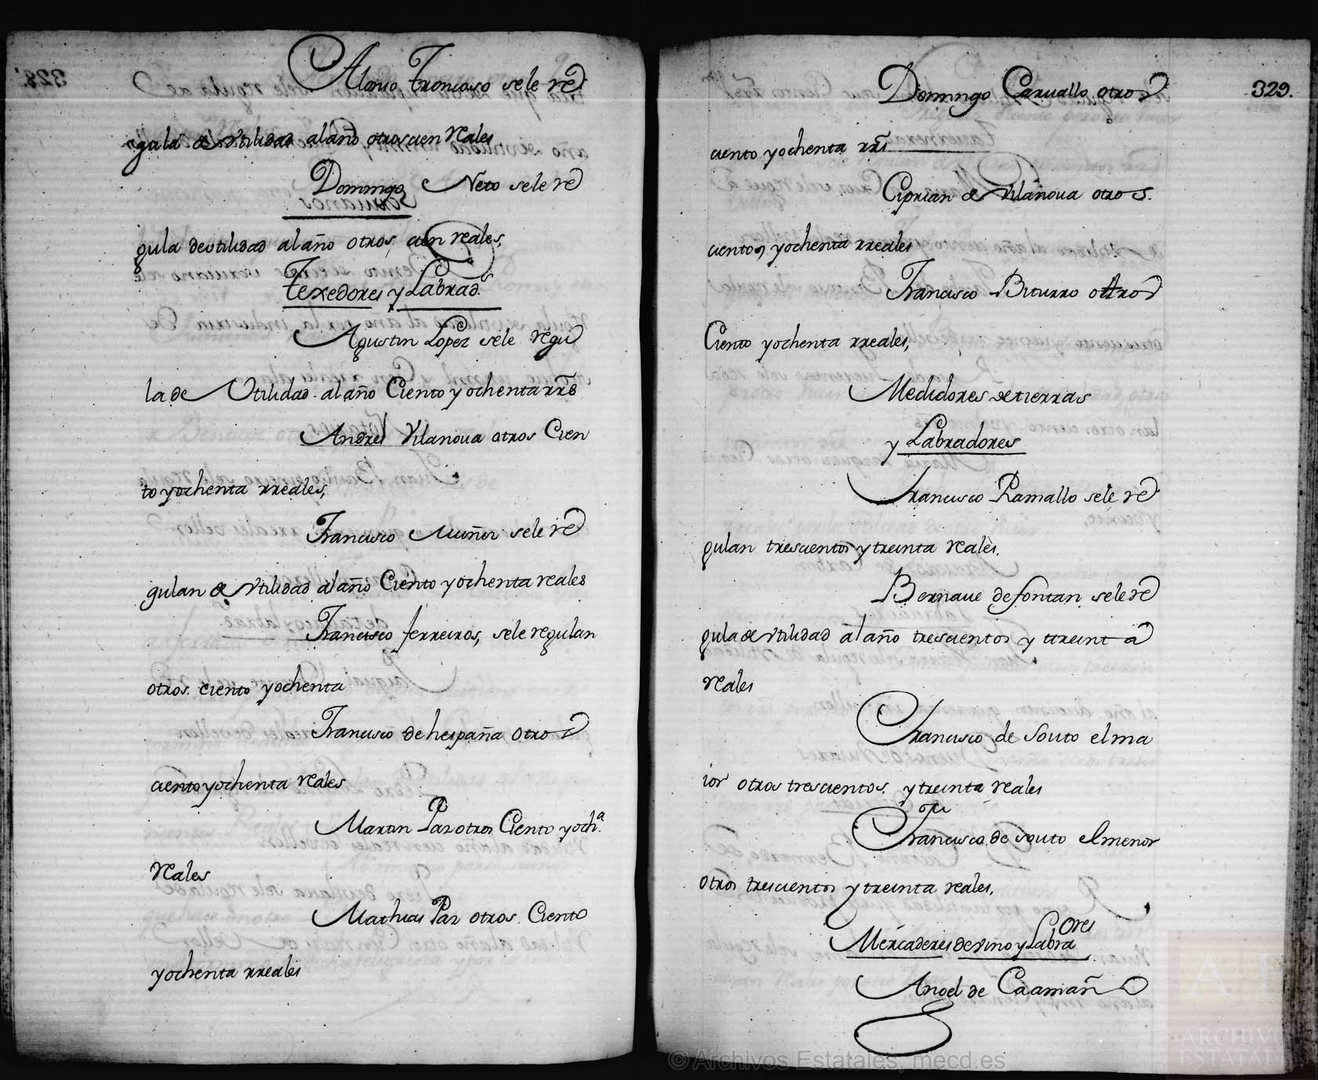 Alonso Troncoso sele re
gula de utilidad al año otros cien reales
Domingo Neto sele re
gula deutilidad al año otros cien reales,
Texedores y Labrad.
Agustin Lopez sele regu
la de Utilidad al año Ciento y ochenta rr.s
Andres Vilanova otros Cien
to yochenta rreales,
Francisco Muñoz sele re
gulan de utilidad al año Ciento y ochenta reales
Francisco ferreiros, sele regulan
otros ciento yochenta
Francisco de hespaña otros
ciento yochenta reales
Martin Paz otros Ciento yoch.a
reales
Mathias Paz otros Ciento
yochenta rreales
329.
Domingo Carvallo otros
ciento yochenta rr.s
Ciprian de Vilanova otros
cientos yochenta rreales
Francisco Biturro otros
Ciento yochenta rreales,
Medidores de tierras
y Labradores
Francisco Ramallo sele re
gulan trescientos y treinta reales.
Bernave defontan sele re
gula de utilidad al año trescientos y treinta
reales
Francisco de Souto elma
ior otros trescientos y treinta reales
Francisco de Souto elmenor
otros trescientos y treinta reales,
Mercaderes devino y Labra ores
Anoel de Caamaño
© Archivos Estatales, mecd.es
ARCHIVOS
ESTATALES